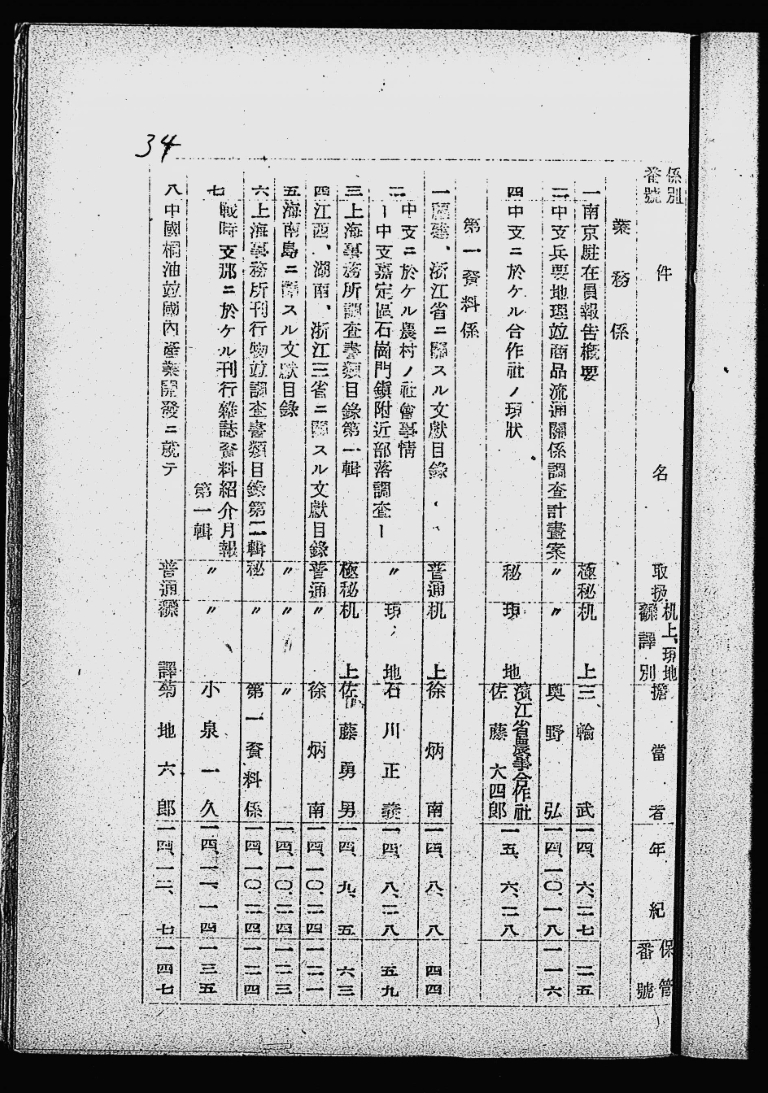 34
係別番號
件名
取扱
机上、現地飜譯別
擔當者
年紀
保管番號
業務係
一 南京駐在員報告概要 極秘 机上 三輪武 一四、六、二七 二五
二 中支兵要地理竝商品流通關係調査計畫案 〃 〃 奥野弘 一四、一〇、一八 一一六
四 中支ニ於ケル合作社ノ現狀 秘 現地 濱江省農事合作社 佐藤大四郎 一五、六、二八
第一資料係
一 福建、浙江省ニ關スル文獻目錄 普通 机上 徐炳南 一四、八、八 四四
二 中支ニ於ケル農村ノ社會事情
ー中支嘉定區石崗門鎭附近部落調査ー 〃 現地 石川正義 一四、八、二八 五九
三 上海事務所調査書類目錄第一輯 極秘 机上 佐藤勇男 一四、九、五 六三
四 江西、湖南、浙江三省ニ關スル文獻目錄 普通 〃 徐炳南 一四、一〇、二四 一二一
五 海南島ニ關スル文獻目錄 〃 〃 〃 一四、一〇、二四 一二三
六 上海事務所刊行物竝調査書類目錄第二輯 秘 〃 第一資料係 一四、一〇、二四 一二四
七 戰時支那ニ於ケル刊行雜誌資料紹介月報
第一輯 〃 〃 小泉一久 一四、一一、一四 一三五
八 中國桐油竝國內產業開發ニ就テ 普通 飜譯 菊地六郎 一四、一二、七 一四七